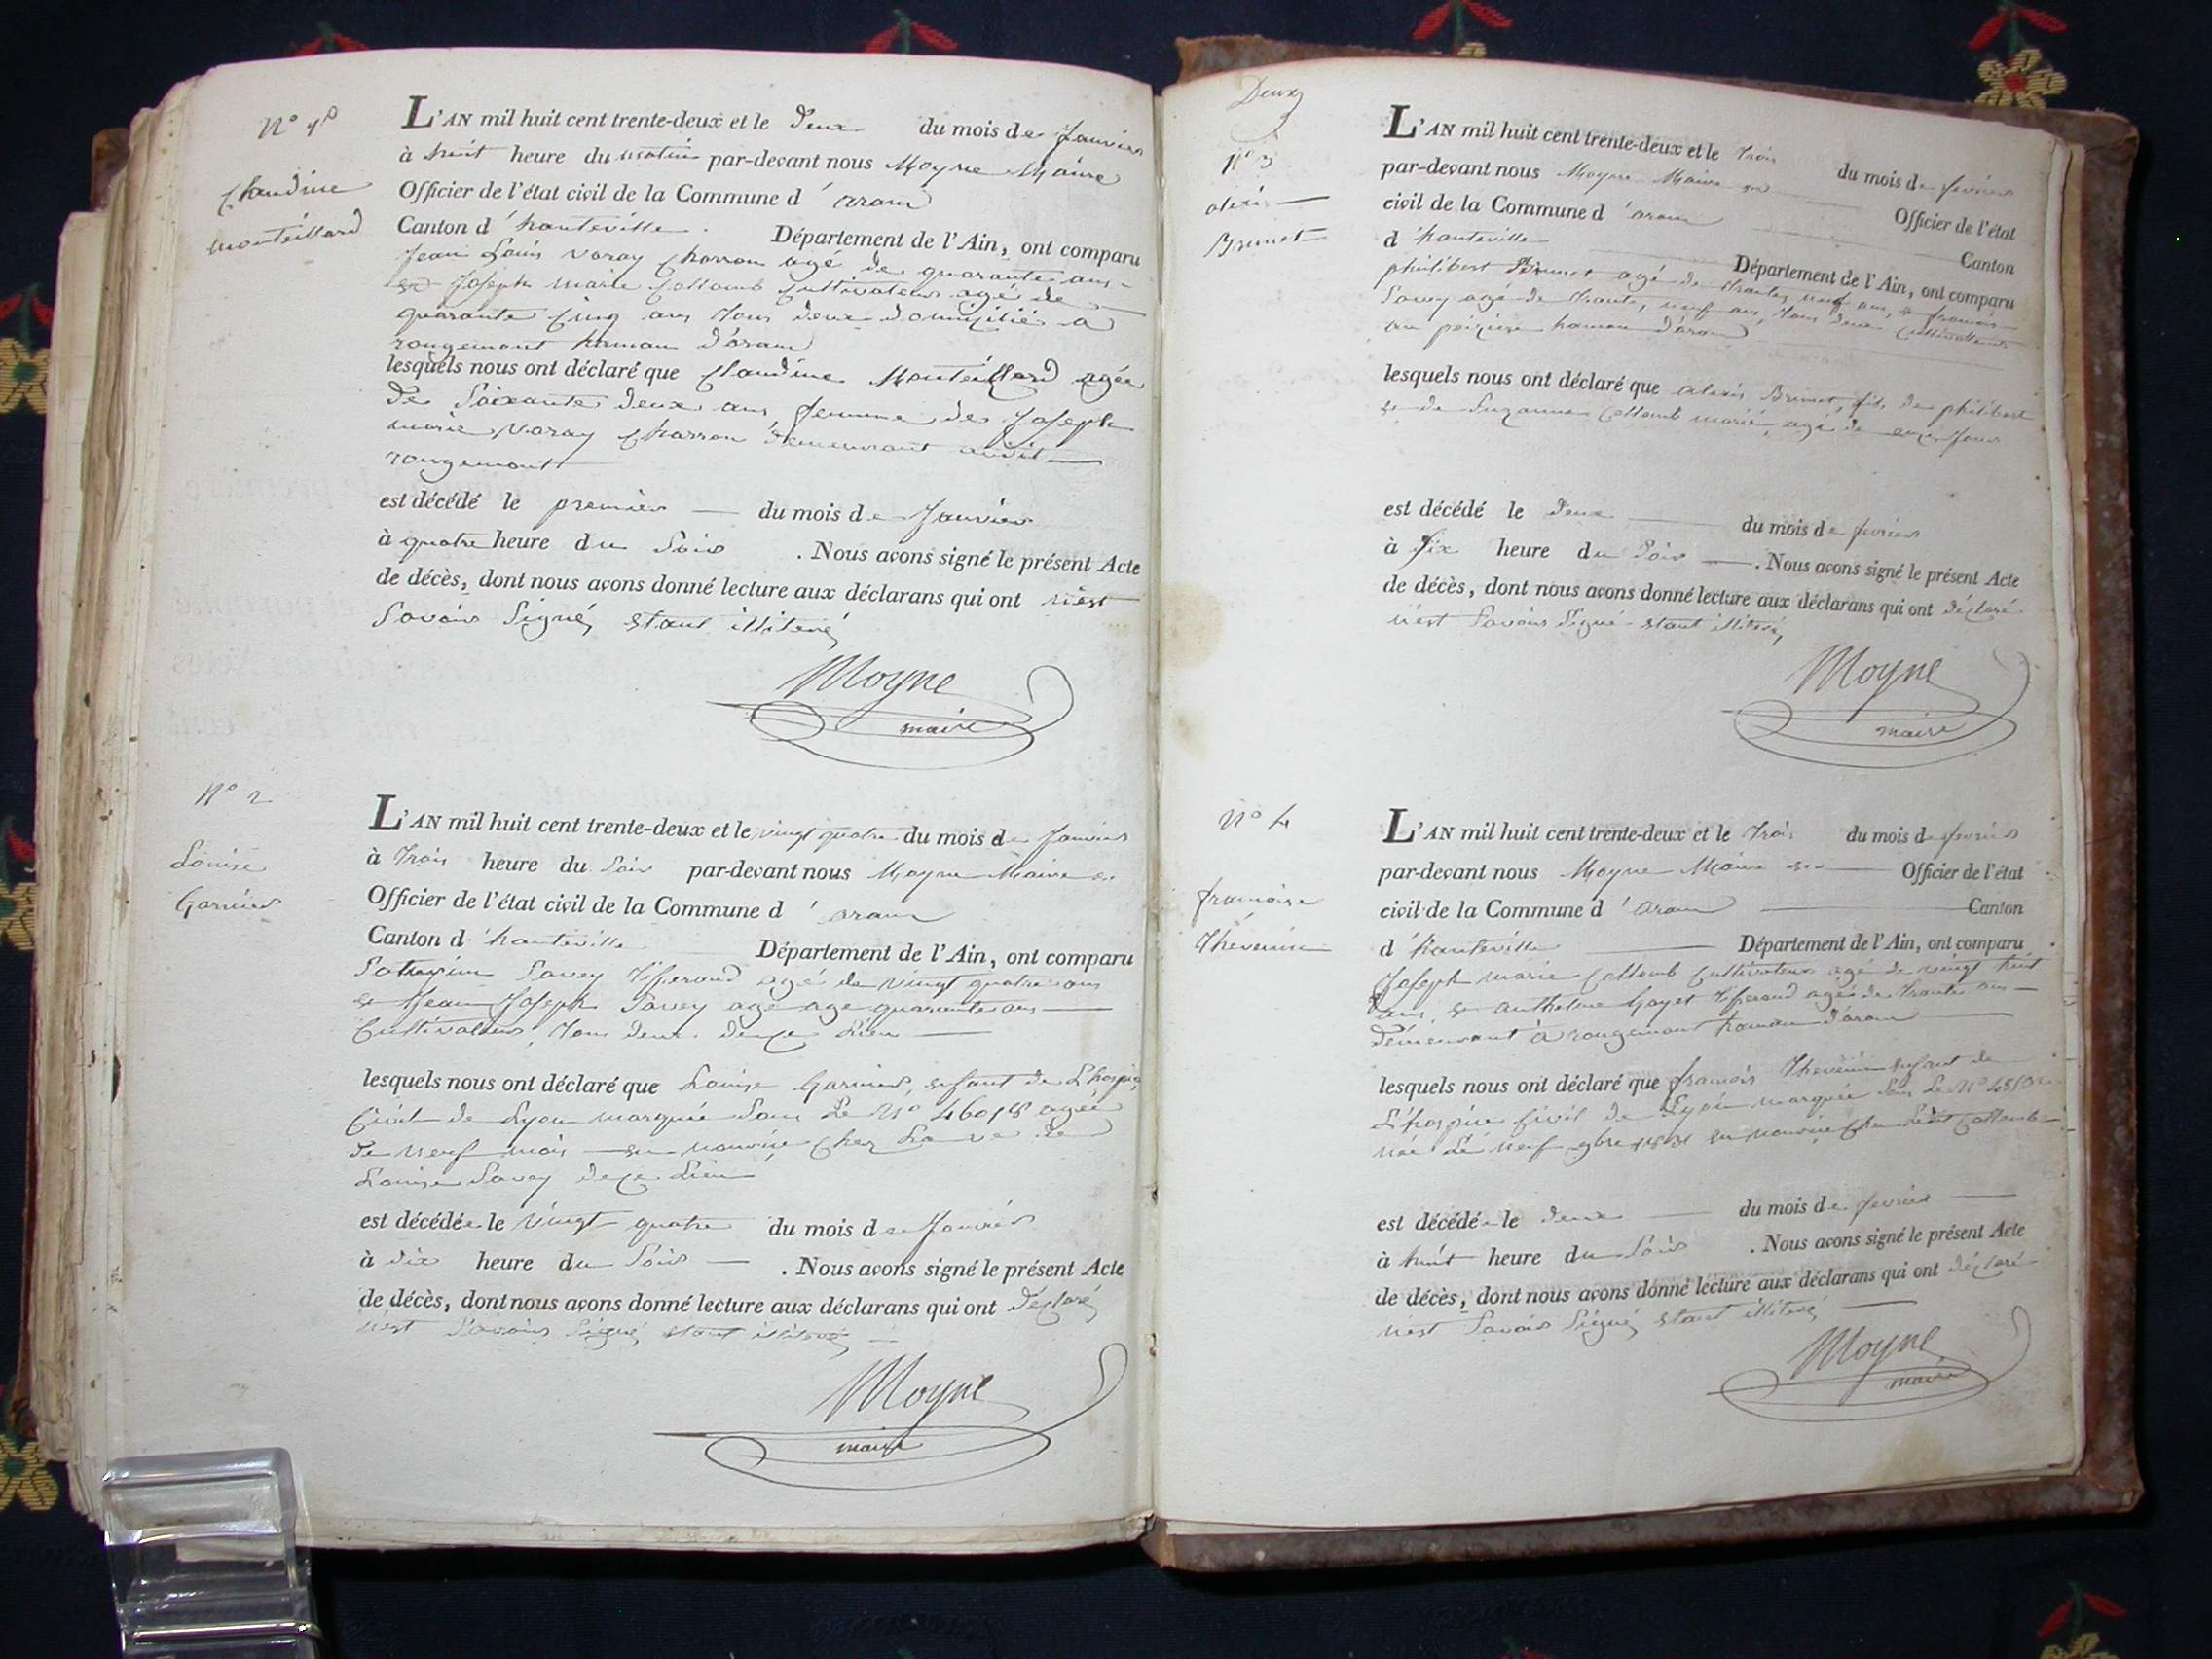 N° 1er
Claudine
Monteillard
L'AN mil huit cent trente-deux et le deux du mois de Janvier
à huit heure du matin par-devant nous Moyne Maire
Officier de l'état civil de la Commune d'aranc
Canton d'hauteville. Département de l'Ain, ont comparu
Jean Louis Varay Charron agé de quarante ans
et Joseph Marie Collomb Cultivateur agé de
quarante Cinq ans tous deux domiciliés a
rougemont hameau d'aranc
lesquels nous ont déclaré que Claudine Monteillard agée
de Soixante deux ans femme de Joseph
marie Varay Charron demeurant audit
rougemont
est décédé le premier du mois de Janvier
à quatre heure du Soir. Nous avons signé le présent Acte
de décès, dont nous avons donné lecture aux déclarans qui ont n'est
Savoir Signé, étant illiteré
Moyne
maire
N° 2
Louise
Garnier
L'AN mil huit cent trente-deux et le vingt quatre du mois de Janvier
à trois heure du Soir par-devant nous Moyne Maire et
Officier de l'état civil de la Commune d'aranc
Canton d'hauteville Département de l'Ain, ont comparu
Savey Tisserand agé de vingt quatre ans
et Jean Joseph Savey agé age quarante ans
Cultivateurs, tous deux de Ce Lieu
lesquels nous ont déclaré que Louise Garnier, enfant de L'hospice
Civil de Lyon marquée Sous Le N° 46018 agée
de neuf mois en nourrice Chez La ve de
Louise Savey de Ce Lieu
est décédée le vingt quatre du mois de Janvier
à dix heure du Soir. Nous avons signé le présent Acte
de décès, dont nous avons donné lecture aux déclarans qui ont déclaré
n'est Savoir Signé, étant illiteré
Moyne
maire
Deux
N° 3
alexis
Brunet
L'AN mil huit cent trente-deux et le trois du mois de fevrier
par-devant nous Moyne Maire et Officier de l'état
civil de la Commune d'aranc Canton
d'hauteville Département de l'Ain, ont comparu
philibert Brunet agé de trante neuf ans, et françois
Savey agé de trante neuf ans, tous deux Cultivateurs
au hameau d'aranc
lesquels nous ont déclaré que alexis Brunet, fils de philibert
et de Suzanne Collomb marié, agé de onze Jours
est décédé le deux du mois de fevrier
à Six heure du Soir. Nous avons signé le présent Acte
de décès, dont nous avons donné lecture aux déclarans qui ont déclaré
n'est Savoir Signé étant illiteré,
Moyne
maire
N° 4
françoise
Thevenin
L'AN mil huit cent trente-deux et le trois du mois de fevrier
par-devant nous Moyne Maire et Officier de l'état
civil de la Commune d'aranc Canton
d'hauteville Département de l'Ain, ont comparu
Joseph marie Collomb Cultivateur agé de vingt huit
ans, et anthelme Goyet Tisserand agé de trante ans
demeurant à rougemont hameau d'aranc
lesquels nous ont déclaré que françois Thevenin enfant de
L'hospice Civil de Lyon marquée Sous Le N°
née Le neuf 9bre 1831 en nourrice Chez Ledit Collomb
est décédée le deux du mois de fevrier
à huit heure du Soir. Nous avons signé le présent Acte
de décès, dont nous avons donné lecture aux déclarans qui ont déclaré
n'est Savoir Signé, étant illiteré
Moyne
maire